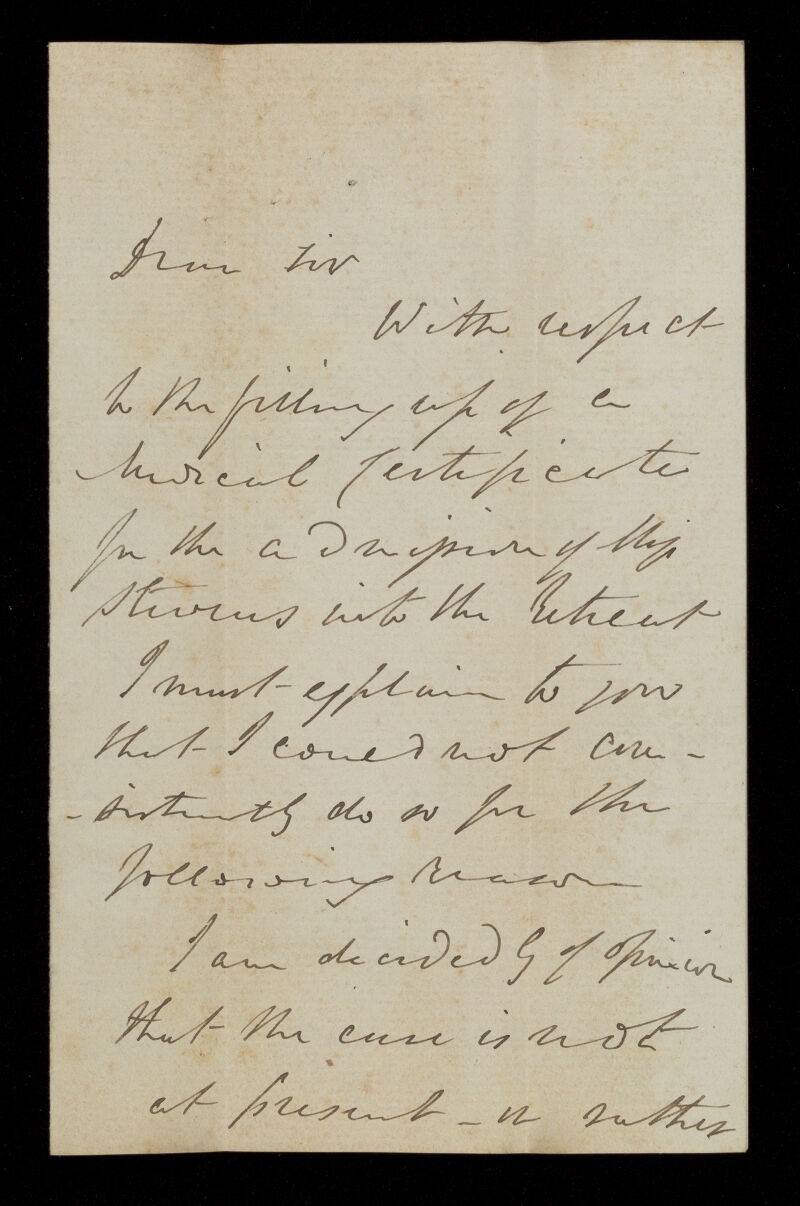 Dear Sir
With respect
to the filling up of a
Medical Certificate
for the admission of Miss
Stevens into the Retreat
I must explain to you
that I could not con-
-sistently do so for the
following reason
I am decidedly of opinion
that the case is not
at present - or rather